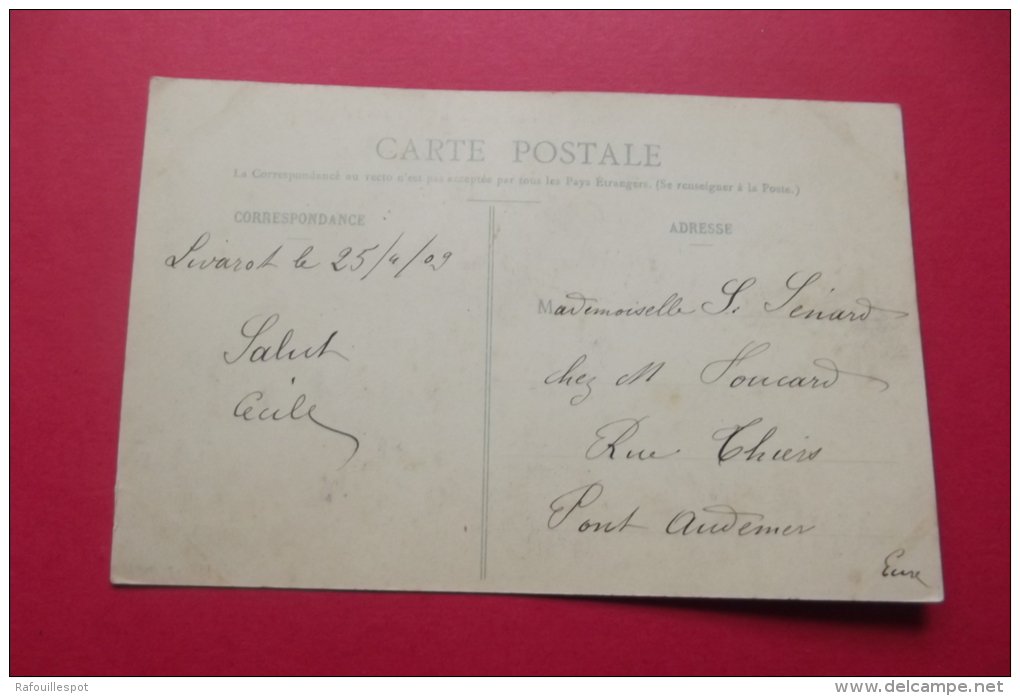 CARTE POSTALE
La Correspondance au recto n'est pas acceptée par tous les Pays Étrangers. (Se renseigner à la Poste.)
CORRESPONDANCE
Livarot le 25/4/09
Salut
Cécile
ADRESSE
Mademoiselle S. Sénard
chez M Foucard
Rue Thiers
Pont Audemer
Eure
Rafouillespot
www.delcampe.net